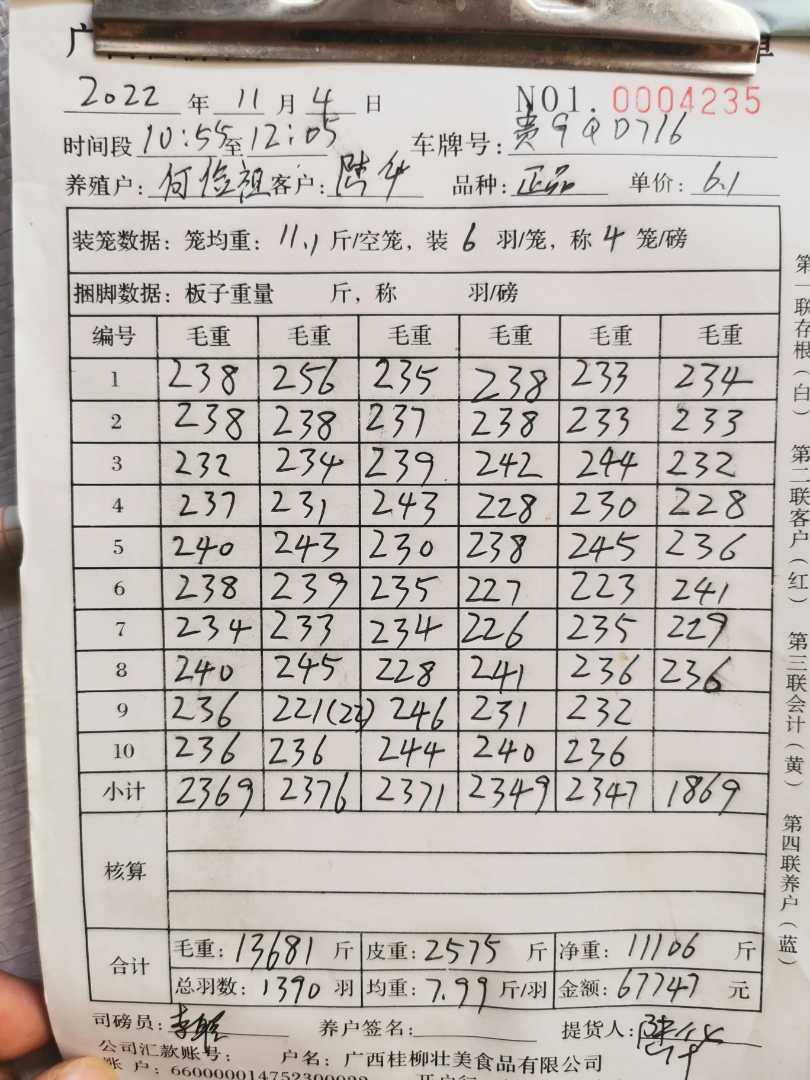 广
单
2022 年 11 月 4 日 NO1. 0004235
时间段 10:55至12:05 车牌号: 贵9QD716
养殖户: 何俭祖 客户: 陆华 品种: 正品 单价: 6.1
装笼数据: 笼均重: 11.1 斤/空笼, 装 6 羽/笼, 称 4 笼/磅
捆脚数据: 板子重量 斤, 称 羽/磅
编号 毛重 毛重 毛重 毛重 毛重 毛重
1 238 256 235 238 233 234
2 238 238 237 238 233 233
3 232 234 239 242 244 232
4 237 231 243 228 230 228
5 240 243 230 238 245 236
6 238 239 235 227 223 241
7 234 233 234 226 235 229
8 240 245 228 241 236 236
9 236 221(22) 246 231 232
10 236 236 244 240 236
小计 2369 2376 2371 2349 2347 1869
核算
合计 毛重: 13681 斤 皮重: 2575 斤 净重: 11106 斤
总羽数: 1390 羽 均重: 7.99 斤/羽 金额: 67747 元
司磅员: 养户签名: 提货人: 陆华
公司汇款账号: 户名: 广西桂柳壮美食品有限公司
账户: 660000014752300022
第一联存根(白) 第二联客户(红) 第三联会计(黄) 第四联养户(蓝)